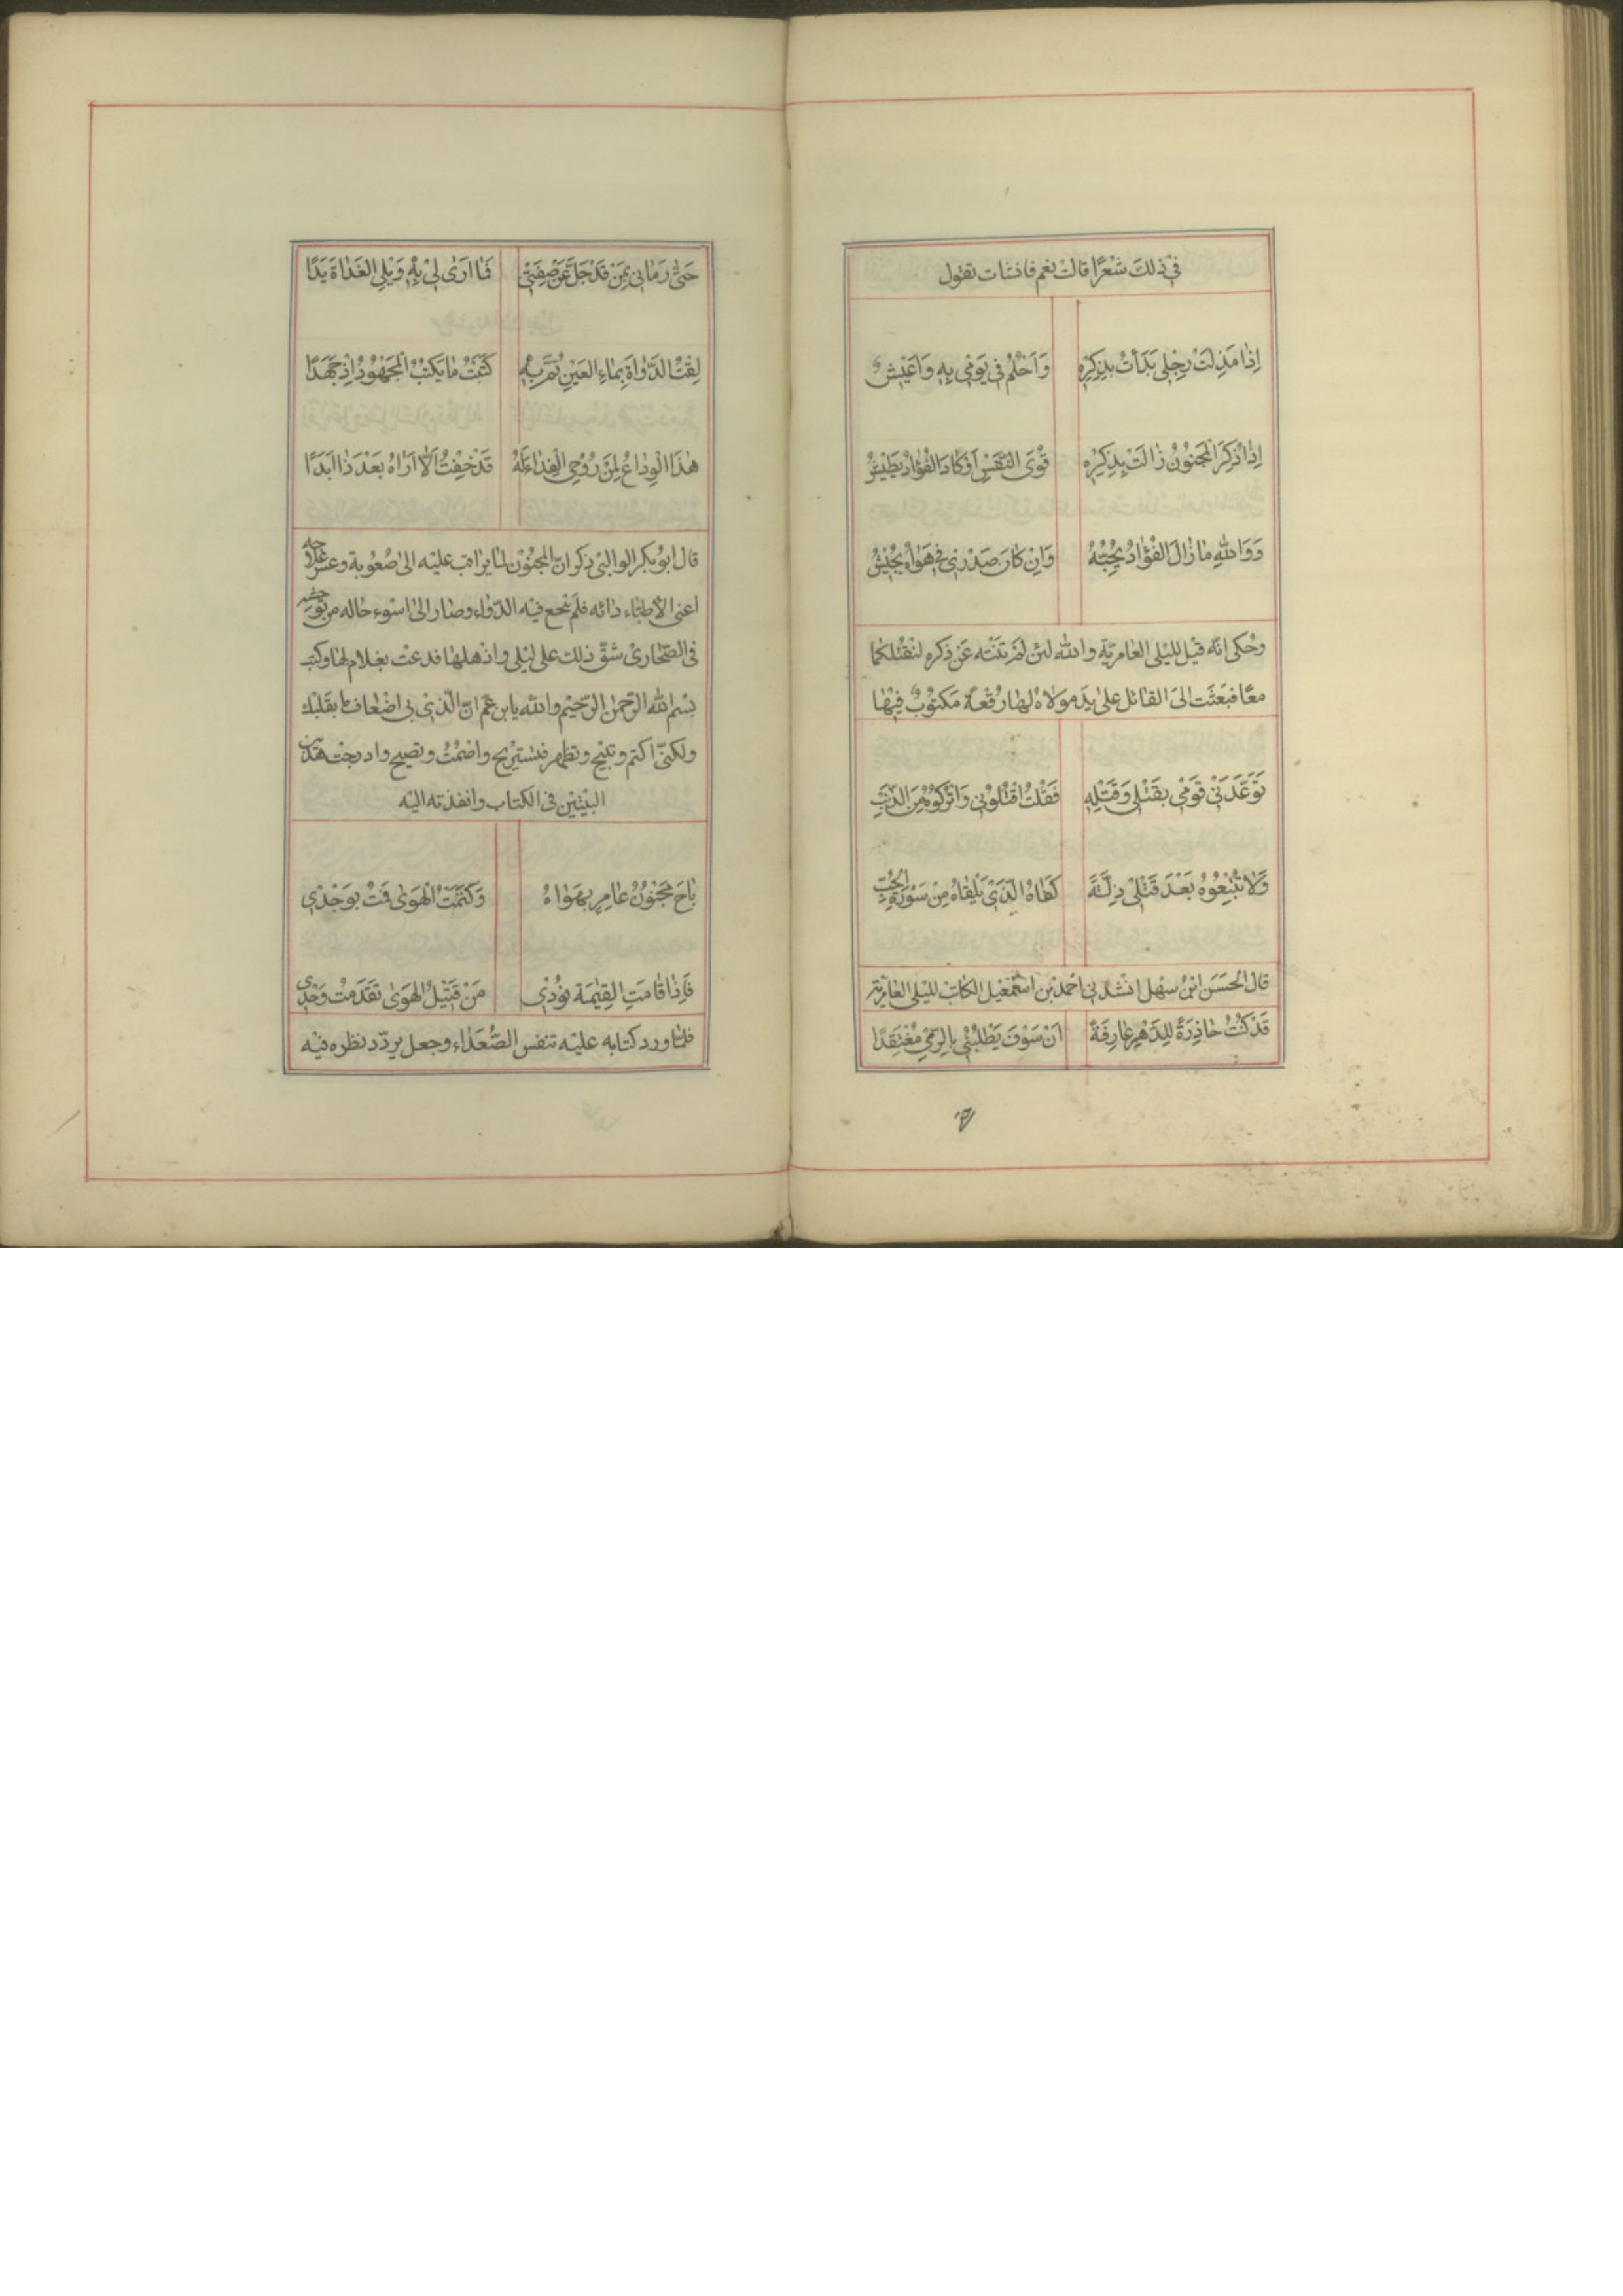 في ذلك شعرًا قالت نعم فانشات تقول
اِذٰا مَذِلَتْ رِجْلِي بَدَأتْ بِذِكْرِهِ وَاَحْلُمُ في يَوْمي بِهِ وَاَعيْشُ
اِذٰا ذُكِرَ الْمَجْنُونُ زٰالَتْ بِذِكْرِهِ قُوَى النَّفْسِ اَوْ كٰادَ الْفُؤادُ يَطيْشُ
وَوَاللهِ مٰا زٰالَ الْفُؤادُ يُحِبُّهُ وَاِنْ كٰانَ صَدْرِي في هَوٰاهُ يَجيْشُ
وحُكي انّه قيْل لليْلى العٰامريّة والله لئن لم تنْته عَن ذكره لنقْتلكما
معًا فبَعَثَت الىَ القائل على يَد مولاه لها رقْعةً مَكتوْبٌ فيْهٰا
تَوَعَّدَنيْ قَوْمي بِقَتْلي وَقَتْلِهِ فَقُلْتُ اقْتُلُوْني وَاتْرُكوْهُ مِنَ الذَّنْبِ
وَلاٰ تُتْبِعُوْهُ بَعْدَ قَتْليْ ذِلَّةً كَفٰاهُ الَّذيْ يَلْقاهُ مِنْ سَوْرَةِ الْحُبِّ
قال الْحسَن ابنْ سهْل انشدني احمد بن اسْمٰعيْل الكاتبْ لليْلى العٰامريّة
قَدْ كُنْتُ حٰاذِرَةً لِلدَّهْرِ عٰارِفَةً اَنْ سَوْفَ يَطْلُبُنْي بِالرَّمْي مُعْتَقِدًا
حَتّٰى رَمٰاني بِمَنْ قَدْ جَلَّ عَنْ صِفَتيْ فَمٰا اَرٰى لِيْ بِهِ وَيْلِي الغَدٰاةَ يَدًا
لِقْتُ الدَّوٰاةَ بِمٰاءِ العَيْنِ ثُمَّ بِهِ كَتَبْتُ مٰا يَكْتُبُ الْمَجْهُوْدُ اِذْ جَهَدًا
هٰذَا الْوِدٰاعُ لِمَنْ رُوْحِي الْفِدٰاءُ لَهُ قَدْ خِفْتُ اَلاّٰ اَرٰاهُ بَعْدَ ذٰا اَبَدًا
قال ابوْ بكر الوالبيْ ذكر انّ المجنُوْن لمّا يراقب عليْه الى صُعُوبة وعسْر علاجه
اعنى الأطبّاء دائه فلَم ينْجع فيْه الدّوٰاء وصٰار الىٰ اسْوء حٰاله من توحّشه
في الصّحٰاريْ شقّ ذلك على ليْلى واذْهلهٰا فدعت بغلام لهٰا وكتبت
بسْم الله الرّحمٰن الرّحيْم والله يابن عَم انّ الّذيْ بي اضْعٰاف مٰا بقَلبْك
ولكنّي اكتم وتبيْح وتظهر فتسْتريْح واصْمُتُ وتصيح وادرجت هٰذين
البيْتيْن في الكتاب وانفذته اليْه
بٰاحَ مَجْنُوْنُ عٰامِرٍ بِهَوٰاهُ وَكَتَمْتُ الْهَوٰى فَمُتْ بِوَجْديْ
فَاِذٰا قٰامَتِ الْقِيٰمَة نُوْديْ مَنْ قَتيْلُ الْهَوٰى تَقَدَّمتُ وَحْديْ
فلمّا ورد كتابه عليْه تنفس الصُّعَدٰاء وجعل يردّد نظره فيْه